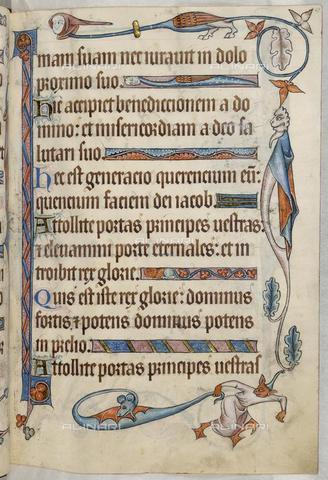 mam suam nec iuravit in dolo
proximo suo.
Hic accipiet benediccionem a do
mino: et misericordiam a deo sa
lutari suo.
Hec est generacio querencium eu̅:
querencium faciem dei iacob.
Attollite portas principes vestras:
et elevamini porte eternales: et in
troibit rex glorie.
Quis est iste rex glorie: dominus
fortis et potens dominus potens
in prelio.
Attollite portas principes vestras
ALINARI